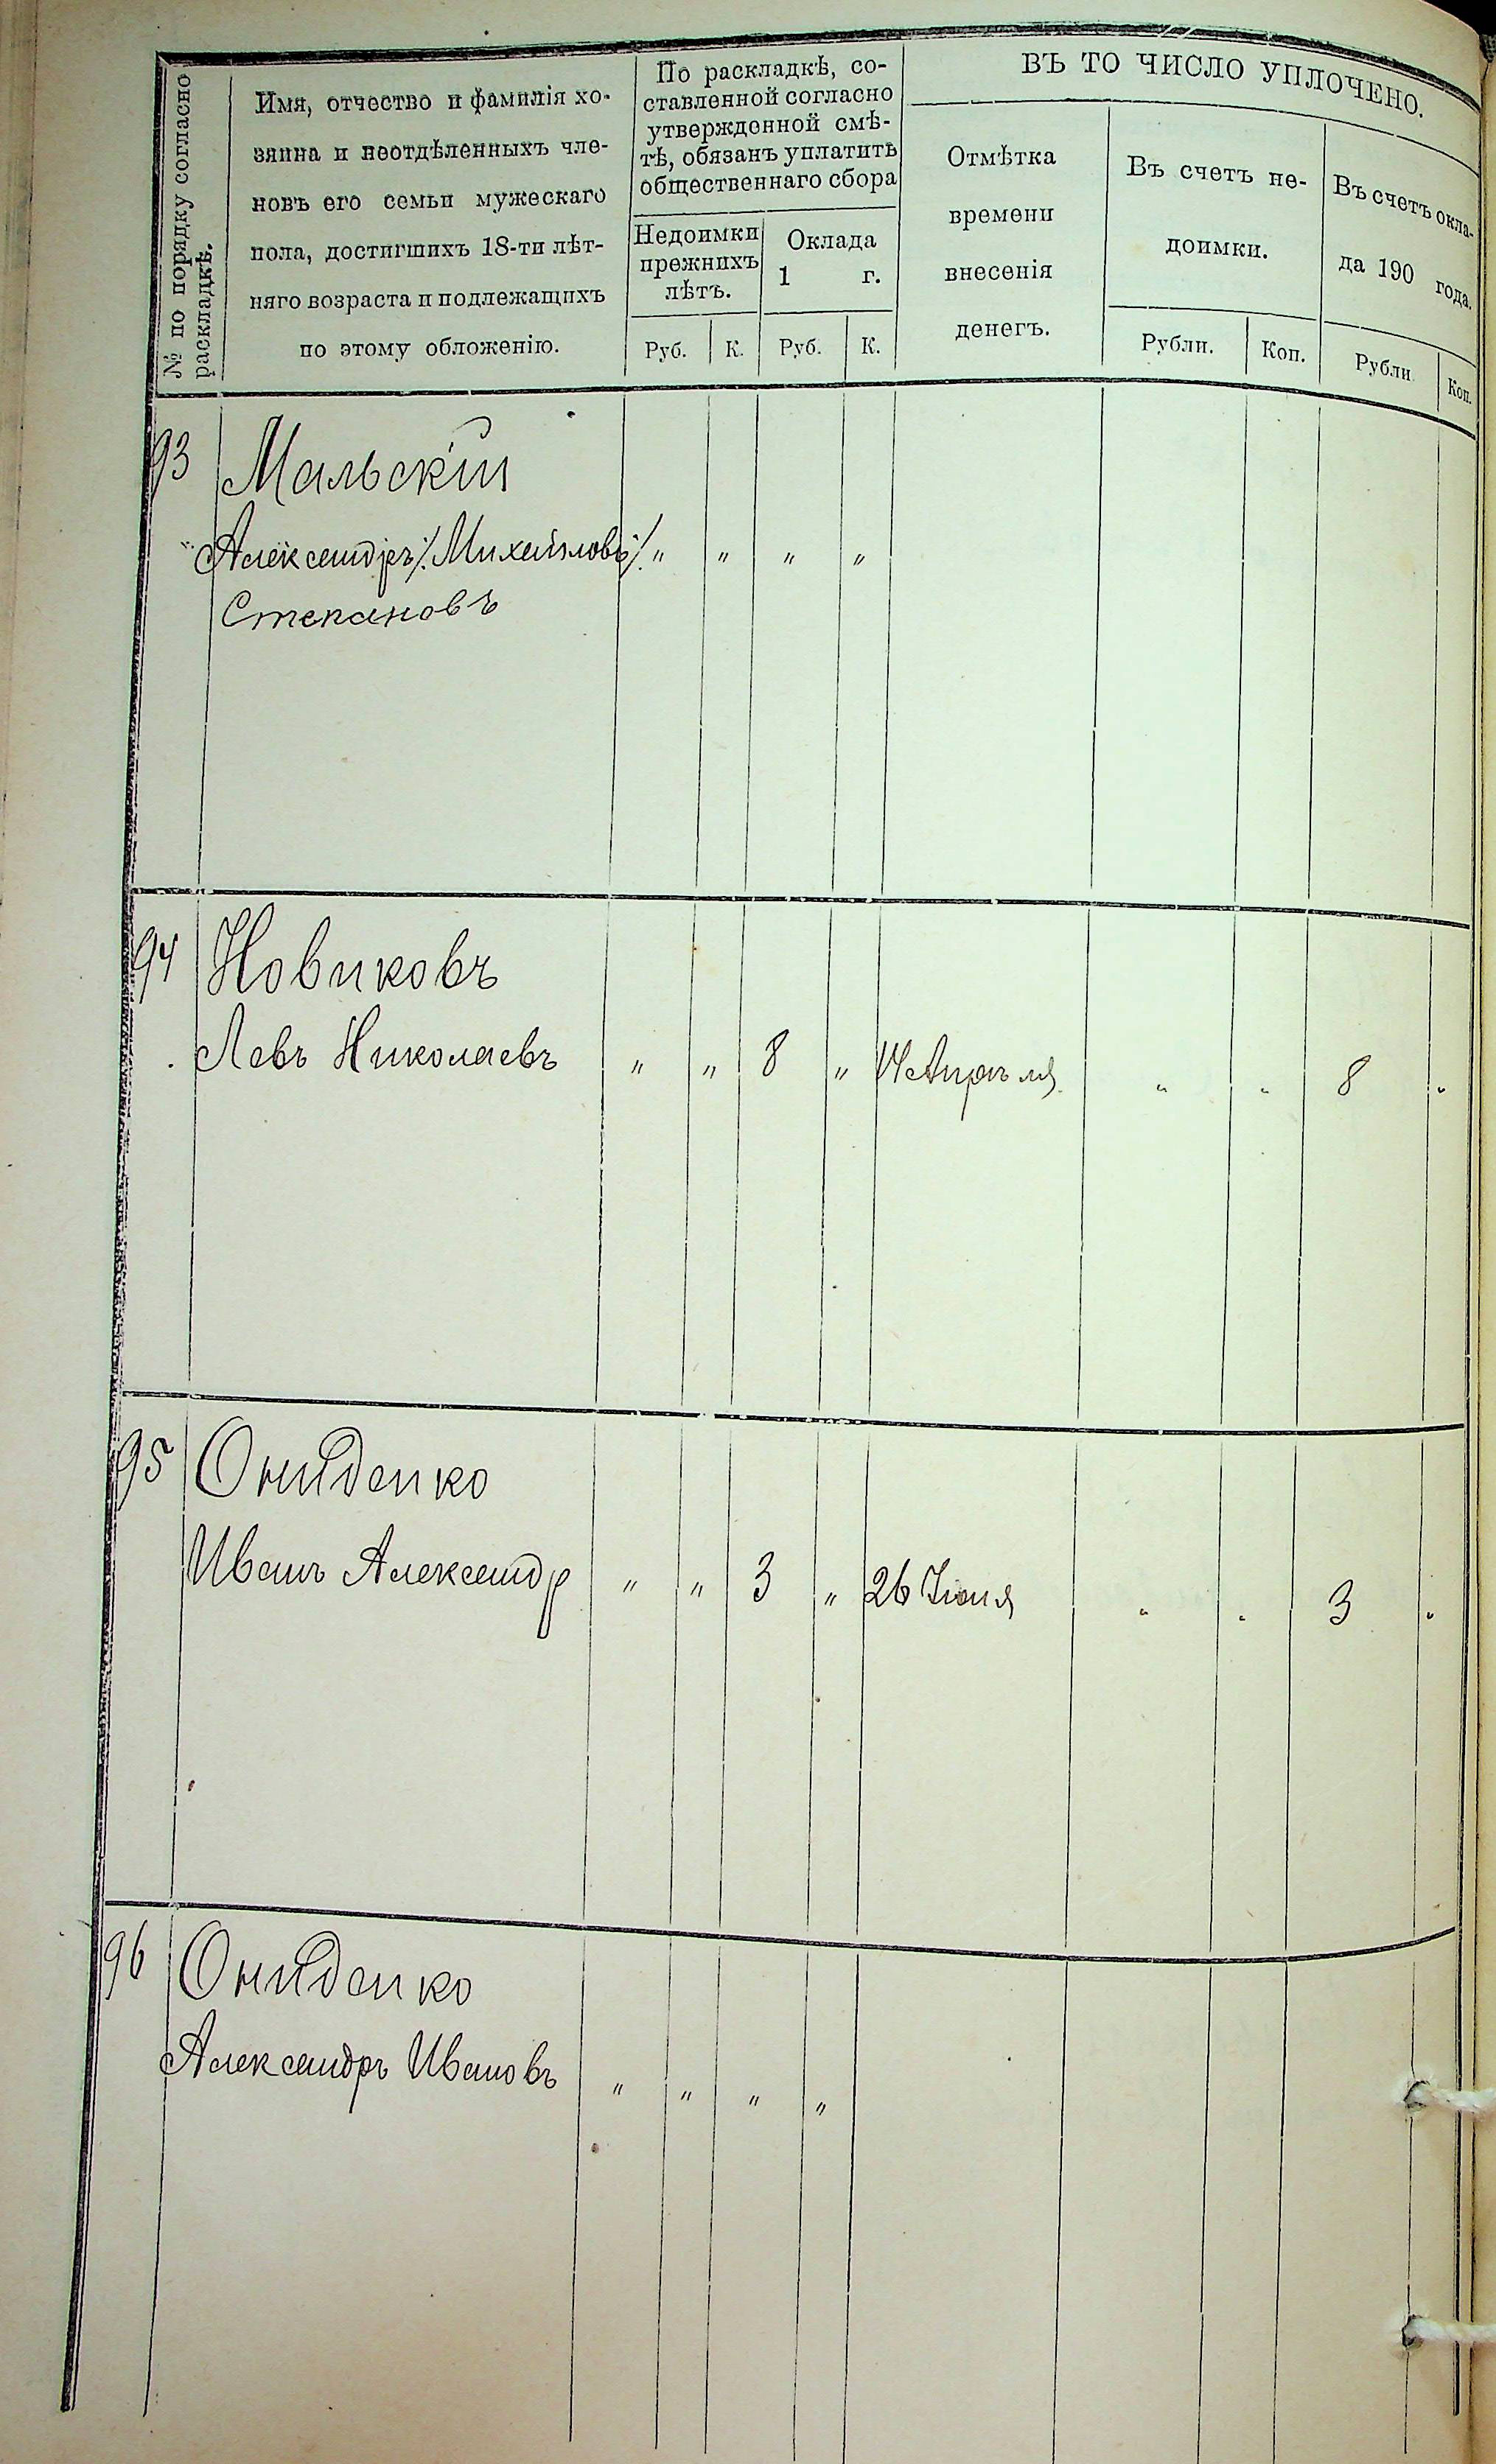 № по порядку согласно
раскладкѣ.
Имя, отчество и фамилія хо-
зяина и неотдѣленныхъ чле-
новъ его семьи мужескаго
пола, достигшихъ 18-ти лѣт-
няго возраста и подлежащихъ
по этому обложенію.
По раскладкѣ, со-
ставленной согласно
утвержденной смѣ-
тѣ, обязанъ уплатить
общественнаго сбора
Недоимки
прежнихъ
лѣтъ.
Оклада
1 г.
Руб. К. Руб. К.
ВЪ ТО ЧИСЛО УПЛОЧЕНО.
Отмѣтка
времени
внесенія
денегъ.
Въ счетъ не-
доимки.
Рубли. Коп.
Въ счетъ окла-
да 190 года.
Рубли Коп.
93 Мальскій
Александръ /. Михайловъ /. " " " "
Степановъ
94 Новиковъ
Левъ Николаевъ " " 8 " 14 Апрѣля " " 8 "
95
Иванъ Александр " " 3 " 26 Іюля " " 3 "
96
Александръ Ивановъ " " " "